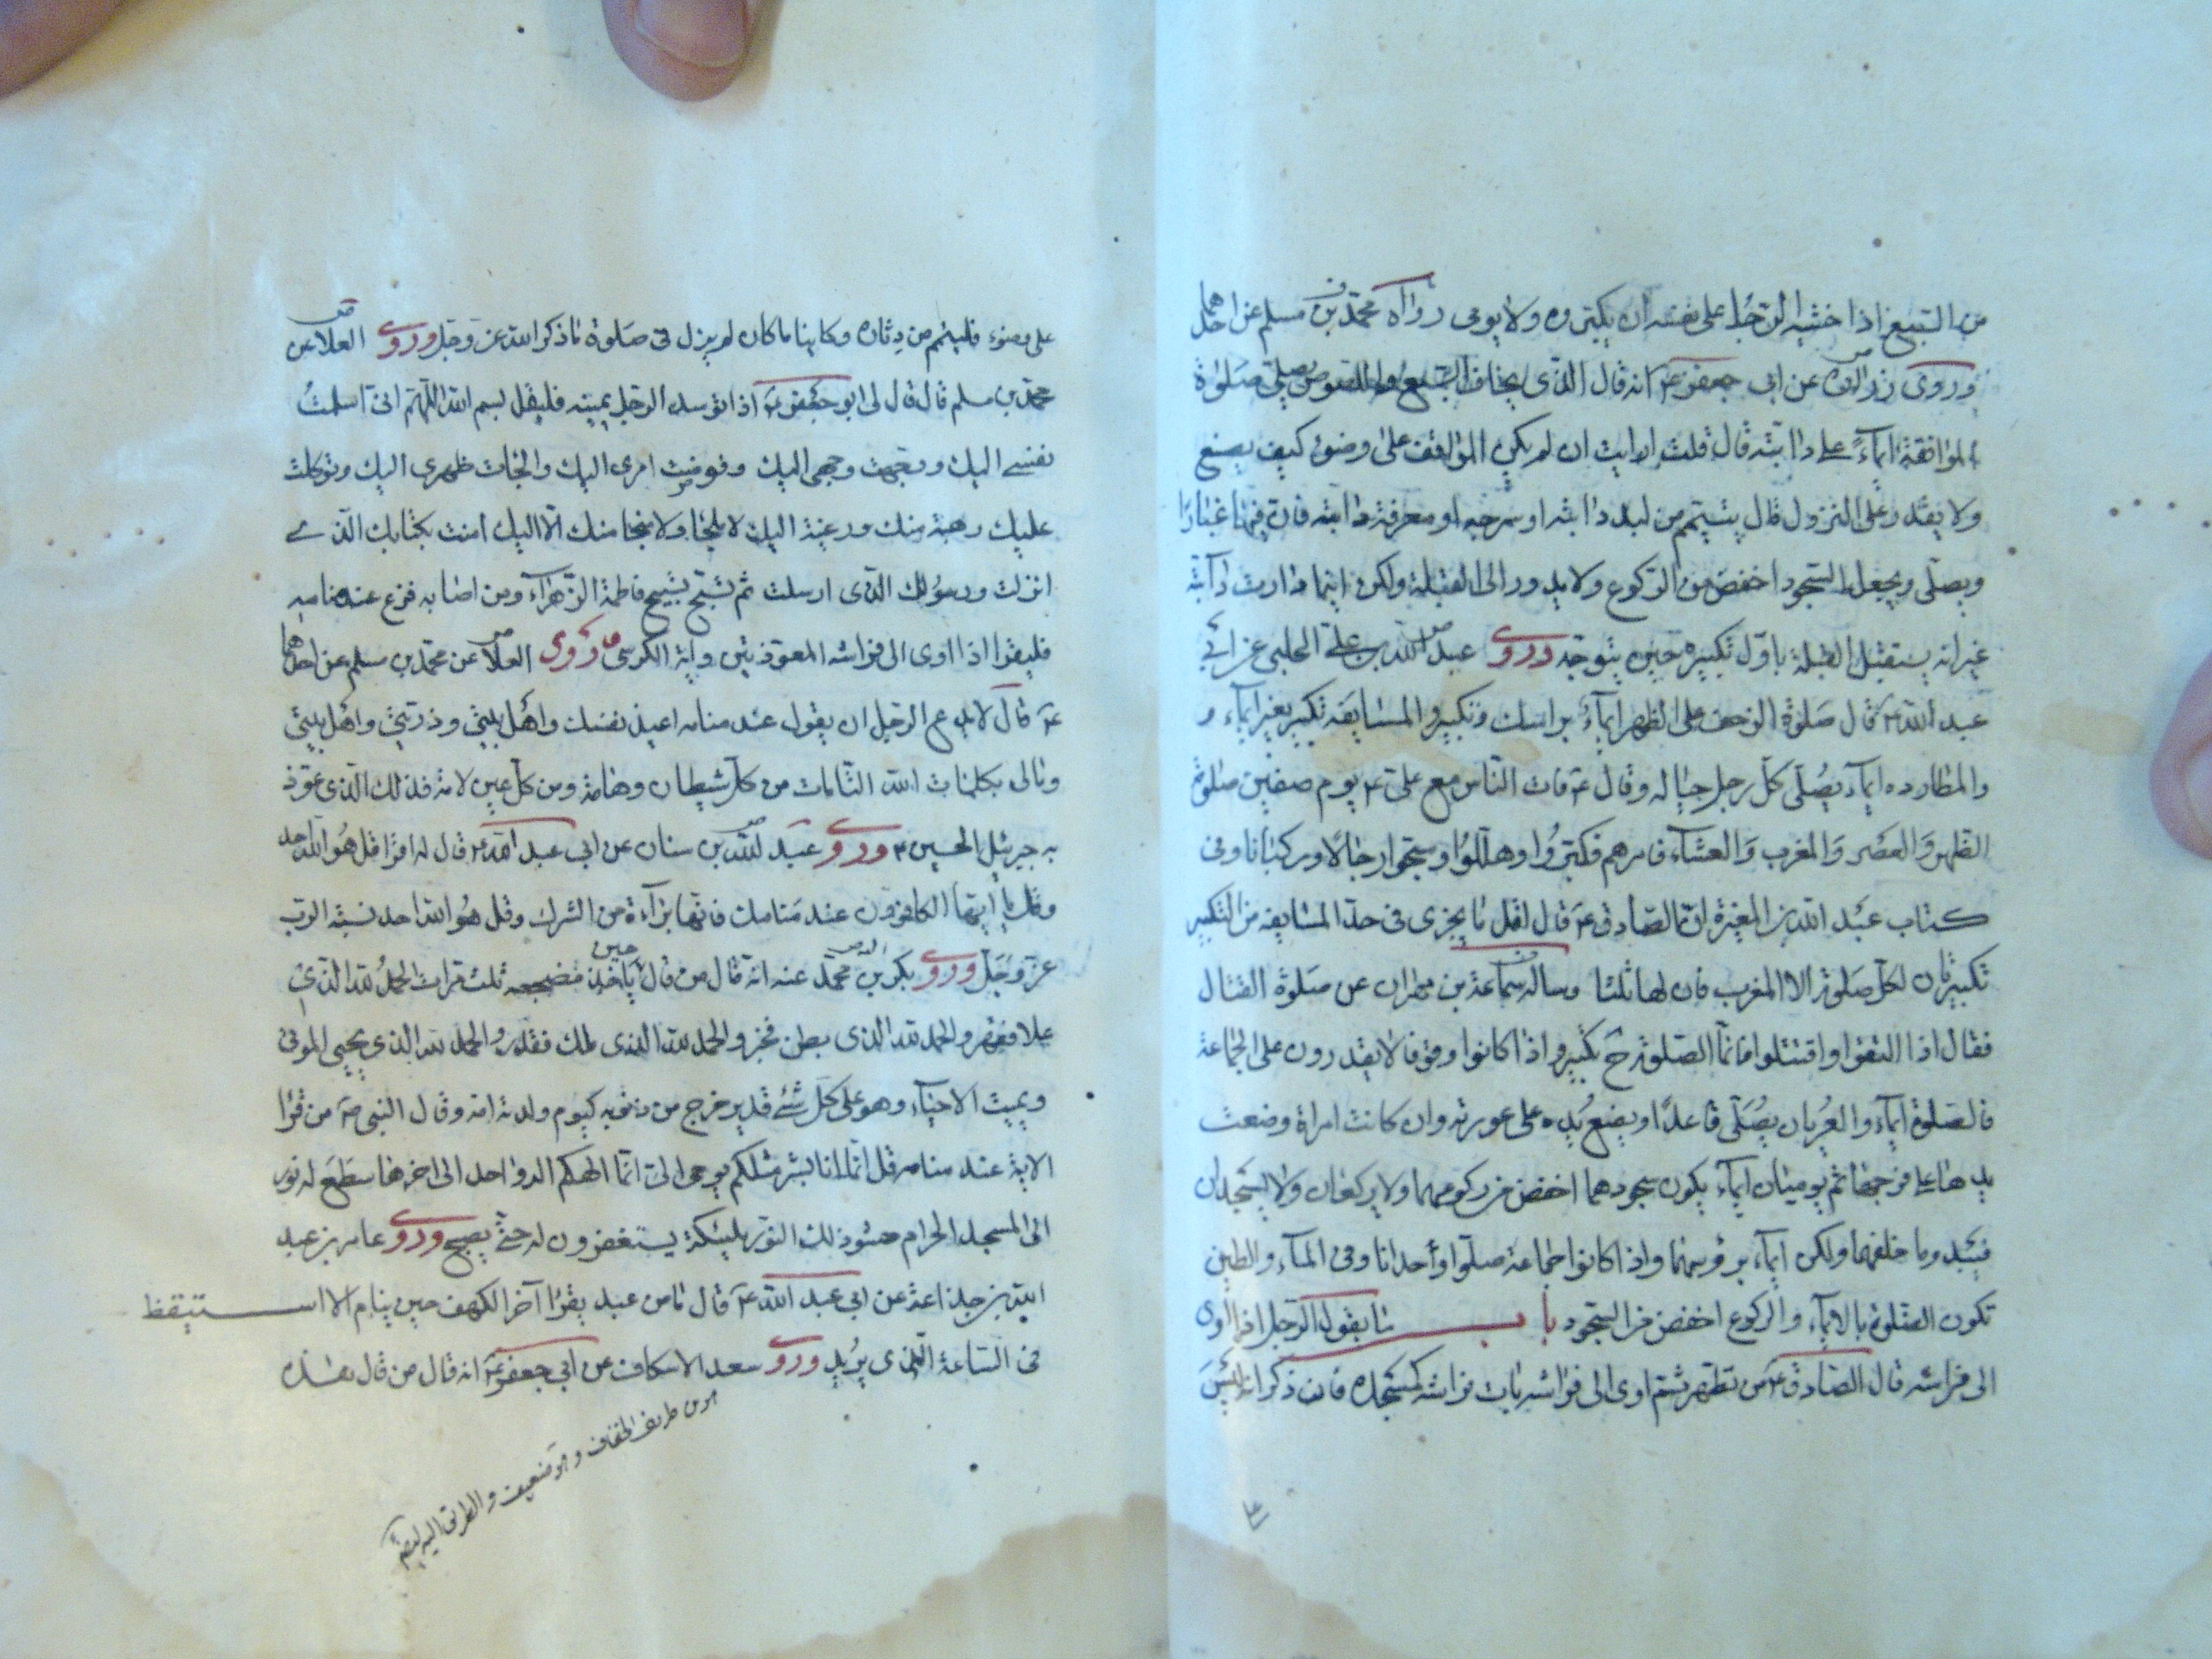 من السبع اذا خشيه الرجل على نفسه ان يكبر ولا يومى رواه محمد بن مسلم عن احدهما
وروى زرارة عن ابى جعفر ع انه قال الذى يخاف السبع واللصوص يصلى صلوة
المواقفة ايماءً على دابته قال قلت ارايت ان لم يكن المواقف على وضوء كيف يصنع
ولا يقدر على النزول قال يتيمم من لبد دابته او سرجه او معرفة دابته فان فيها غبارا
ويصلى ويجعل السجود اخفض من الركوع ولا يدور الى القبلة ولكن اينما دارت دابته
غير انه يستقبل القبلة باول تكبيرة حين يتوجه وروى عبد الله بن على الحلبى عن ابى
عبد الله ع قال صلوة الزحف على الظهر ايماءً براسك وتكبير والمسايفه تكبير بغير ايماء و
والمطارده ايماء يصلى كل رجل حياله وقال ع فات الناس مع على ع يوم صفين صلوة
الظهر والعصر والمغرب والعشاء فامرهم فكبروا وهللوا وسبحوا رجالا وركبانا وفى
كتاب عبد الله بن المغيرة ان الصادق ع قال اقل ما يجزى فى حد المسايفه من التكبير
تكبيرتان لكل صلوة الا المغرب فان لها ثلثا وساله سماعة بن مهران عن صلوة القتال
فقال اذا التقوا واقتتلوا فانما الصلوة ح تكبير واذا كانوا وقوفا لا يقدرون على الجماعة
فالصلوة ايماء والعريان يصلى قاعدا ويضع يده على عورته وان كانت امراة وضعت
يدها على فرجها ثم يوميان ايماء يكون سجودهما اخفض من ركوعهما ولا يركعان ولا يسجدان
فيبدو ما خلفهما ولكن ايماء برؤسهما واذا كانوا جماعة صلوا وأحدانا وفى الماء والطين
تكون الصلوة بالايماء والركوع اخفض من السجود باب ما يقول الرجل اذا اوى
الى فراشه قال الصادق ع من تطهر ثم اوى الى فراشه بات فراشه كمسجده فان ذكر انه ليس
على وضوء فليتيمم من دثاره وكاينا ما كان لم يزل فى صلوة ما ذكر الله عز وجل وروى العلا عن
محمد بن مسلم قال قال لى ابو جعفر ع اذا توسد الرجل يمينه فليقل بسم الله اللهم انى اسلمت
نفسى اليك ووجهت وجهى اليك وفوضت امرى اليك والجات ظهرى اليك وتوكلت
عليك رهبة منك ورغبة اليك لا ملجا ولا منجا منك الا اليك امنت بكتابك الذى
انزلت ورسولك الذى ارسلت ثم تسبح تسبيح فاطمة الزهراء ومن اصابه فزع عند منامه
فليقرا اذا اوى الى فراشه المعوذتين واية الكرسى وروى العلا عن محمد بن مسلم عن احدهما
ع قال لا يدع الرجل ان يقول عند منامه اعيذ نفسى وذريتى واهل بيتى
ومالى بكلمات الله التامات من كل شيطان وهامة ومن كل عين لامة فذلك الذى عوذ
به جبرئيل الحسين ع وروى عبد لله بن سنان عن ابى عبد الله ع قال له اقرا قل هو الله احد
وقل يا ايها الكافرون عند منامك فانها براءة من الشرك وقل هو الله احد نسبة الرب
عز وجل وروى بكر بن محمد عنه انه قال من قال حين ياخذ مضجعه ثلث مرات الحمد لله الذى
علا فقهر والحمد لله الذى بطن فخبر والحمد لله الذى ملك فقدر والحمد لله الذى يحيى الموتى
ويميت الاحياء وهو على كل شئ قدير خرج من ذنوبه كيوم ولدته امه وقال النبى ص من قرا
الاية عند منامه قل انما انا بشر مثلكم يوحى الى انما الهكم اله واحد الى اخرها سطع له نور
الى المسجد الحرام حشو ذلك النور مليئكة يستغفرون له حتى يصبح وروى عامر بن عبد
الله بن جذاعة عن ابى عبد الله ع قال ما من عبد يقرا آخر الكهف حين ينام الا استيقظ
فى الساعة التى يريد وروى سعد الاسكاف عن ابى جعفر ع انه قال من قال هذه
طريف الخفاف وهو ضعيف والطريق اليه